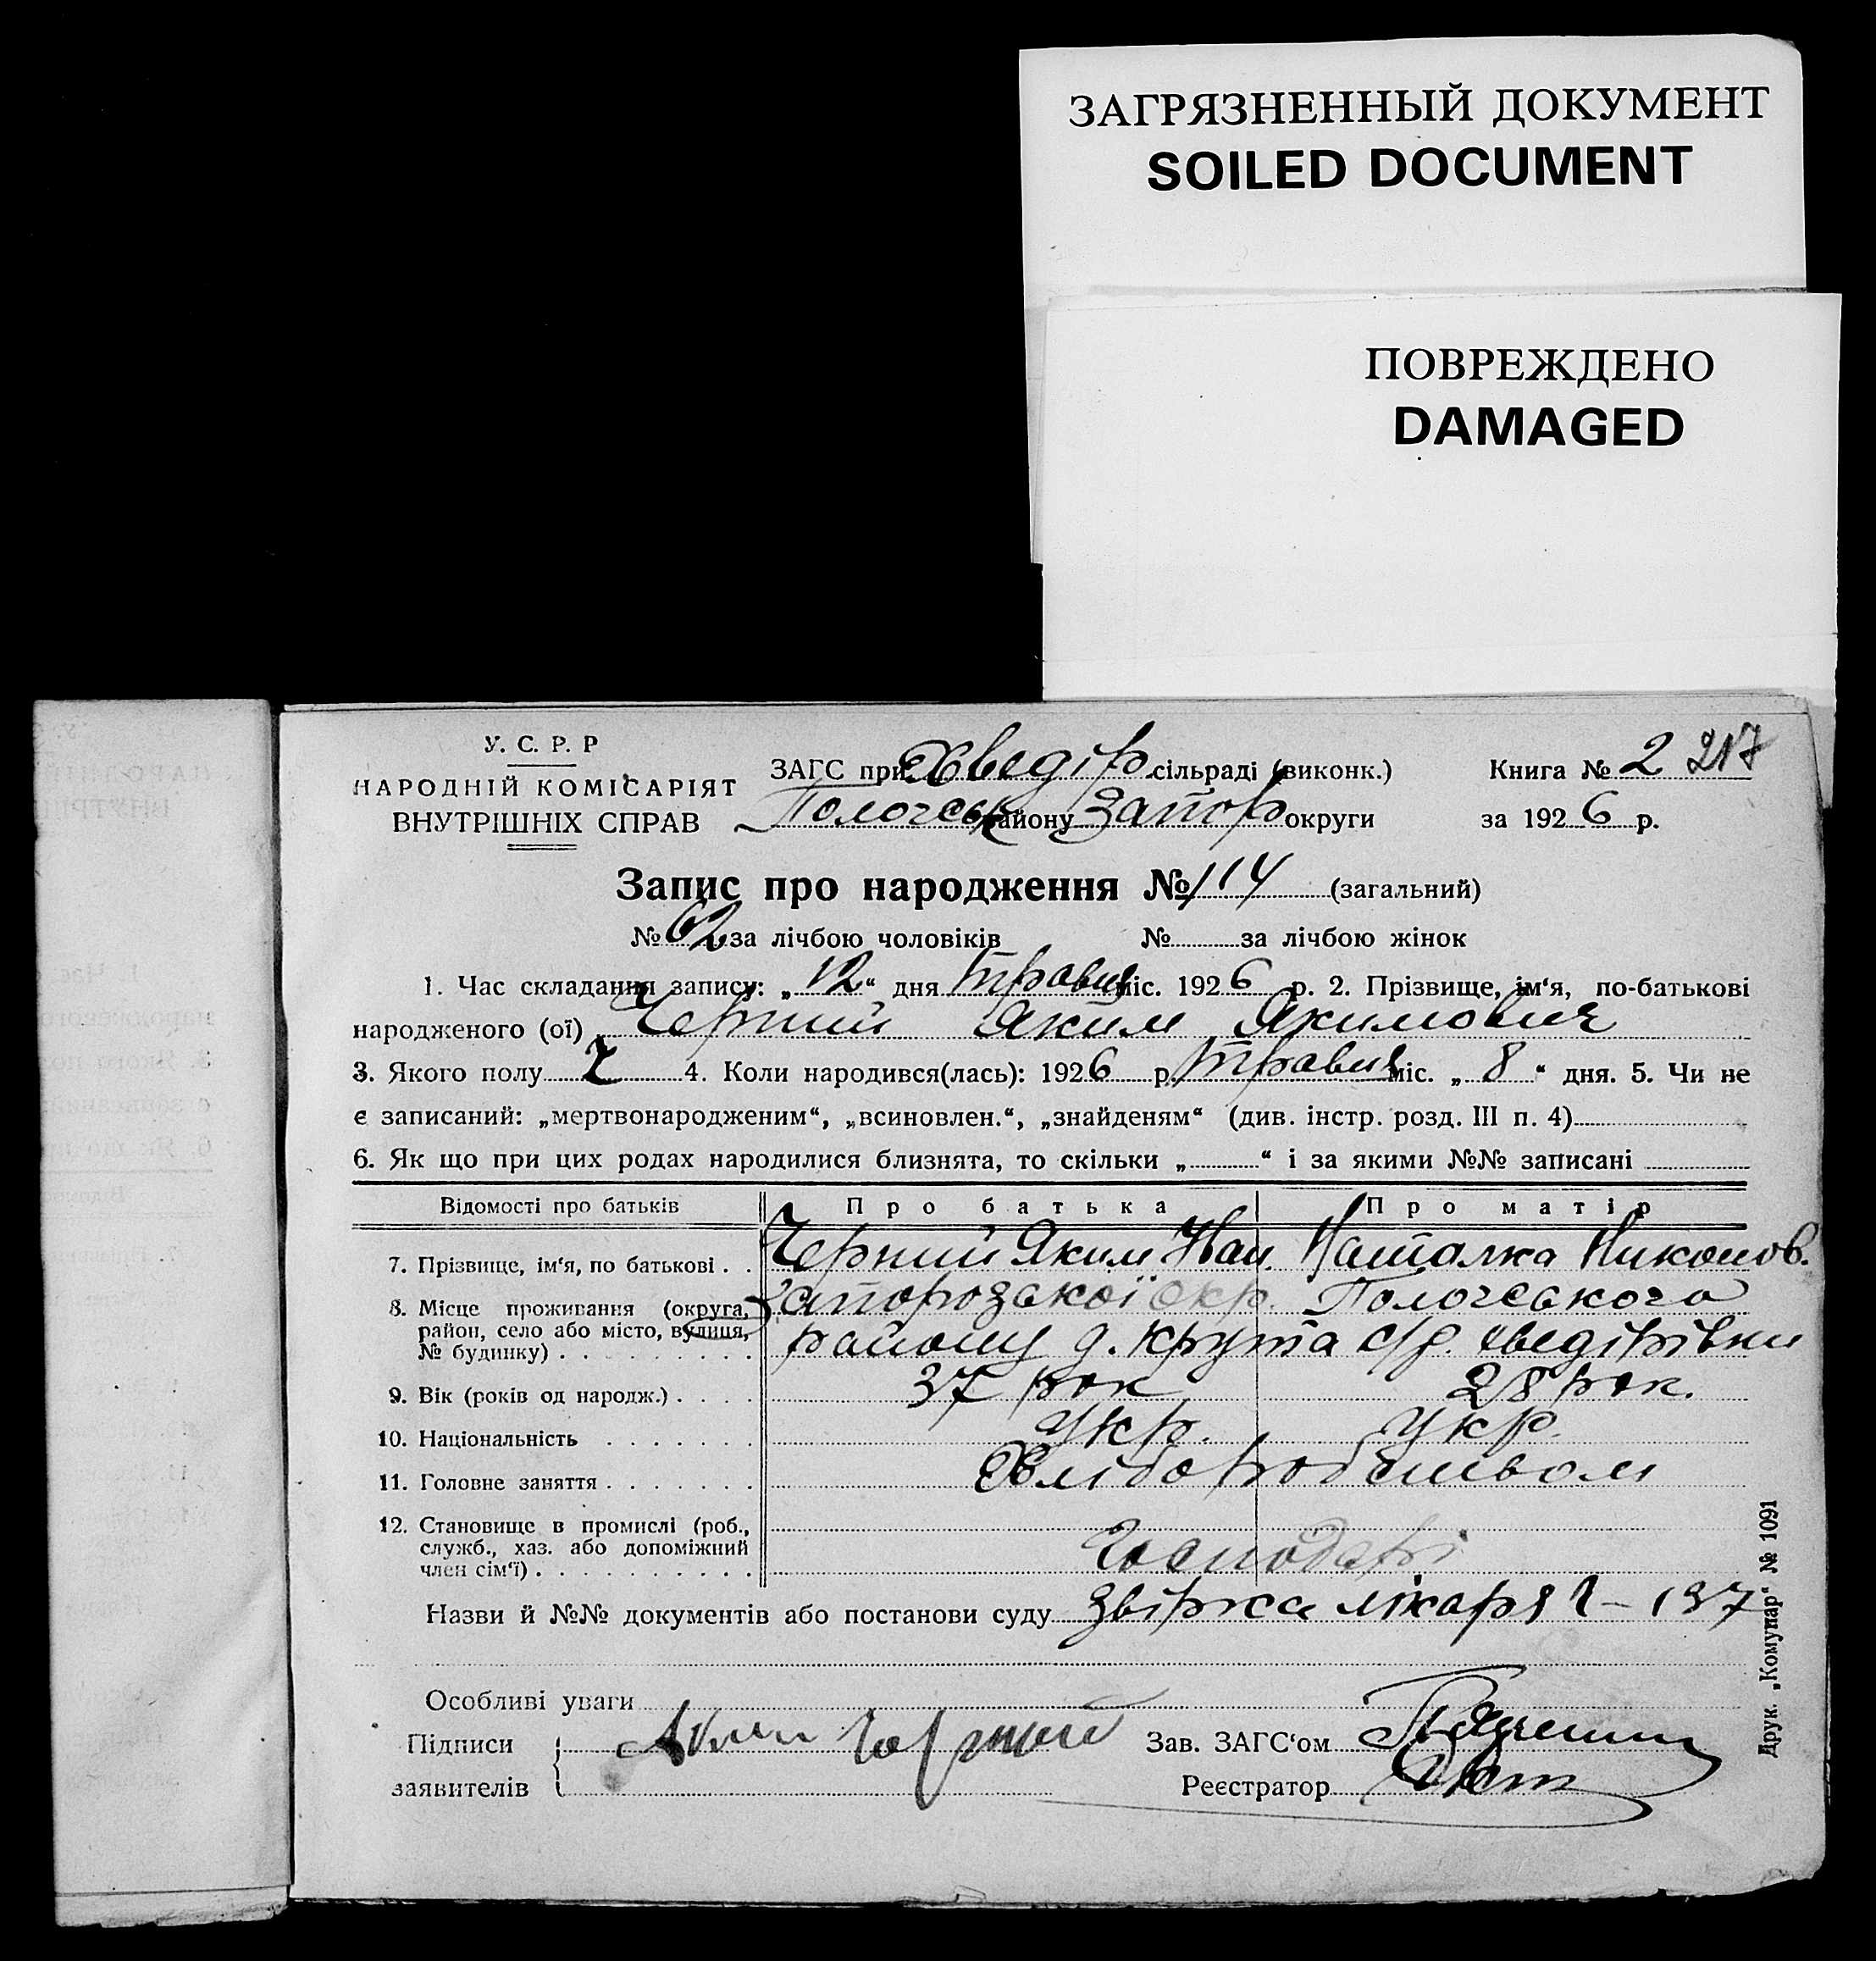 ЗАГРЯЗНЕННЫЙ ДОКУМЕНТ
SOILED DOCUMENT
ПОВРЕЖДЕНО
DAMAGED
У. С. Р. Р
НАРОДНІЙ КОМІСАРІЯТ
ВНУТРІШНІХ СПРАВ
ЗАГС при Хведір сільраді (виконк.)
Пологськ району Запор округи
Книга № 2 217
за 1926 р.
Запис про народження № 114 (загальний)
№ 62 за лічбою чоловіків № за лічбою жінок
1. Час складання запису: „12“ дня травня міс. 1926 р. 2. Прізвище, ім‘я, по-батькові
народженого (ої) Черний Яким Якимович
3. Якого полу Ч 4. Коли народився(лась): 1926 р. травня міс. „8“ дня. 5. Чи не
є записаний: „мертвонародженим“, „всиновлен.“, „знайденям“ (див. інстр. розд. III п. 4)
6. Як що при цих родах народилися близнята, то скільки „ “ і за якими №№ записані
Відомості про батьків Про батька Про матір
7. Прізвище, ім‘я, по батькові . . Черний Яким Иван. Наталка Никонов.
8. Місце проживання (округа, Запорозської окр. Пологського
район, село або місто, вулиця, району д. Крута с/р. Хведірівки
№ будинку) . . . . . . . . .
9. Вік (років од народж.) . . . . 37 рок 28 рок.
10. Національність . . . . . . . Укр. Укр.
11. Головне заняття . . . . . . . Хліборобством
12. Становище в промислі (роб.,
служб., хаз. або допоміжний
член сім‘ї) . . . . . . . . . . Господарі
Назви й №№ документів або постанови суду лікаря 137
Особливі уваги
Підписи Яким Чорний Зав. ЗАГС‘ом
заявителів Реєстратор
Друк. „Комунар“ № 1091